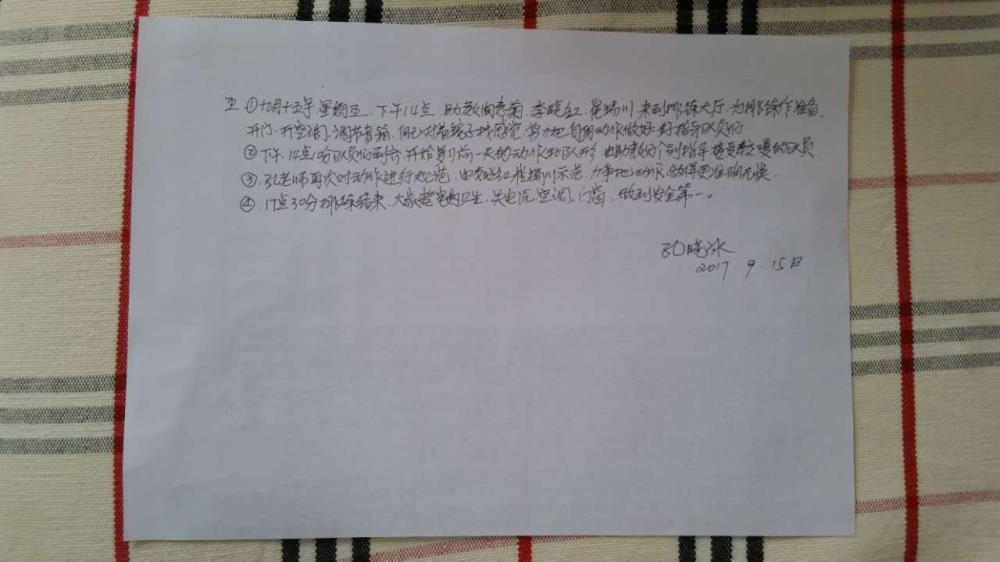 五、①九月十五号星期五、下午14点 助教 李晓红、崔瑞川 来到排练大厅 为排练作准备
开门、开空调、调节音箱、自己对着镜子找感觉 努力把自己的动作做好 好指导队员们
②下午14点 队员们 开始复习前一天的动作和队形 由助教 个别指导 接受较慢的队员
③孔老师再次对动作进行规范、由李晓红 崔瑞川示范、分解 动作、做得更准确无误
④17点30分排练结束、大家搞完 卫生、关电源、空调、门窗、做到安全第一。
孔晓冰
2017.9.15日